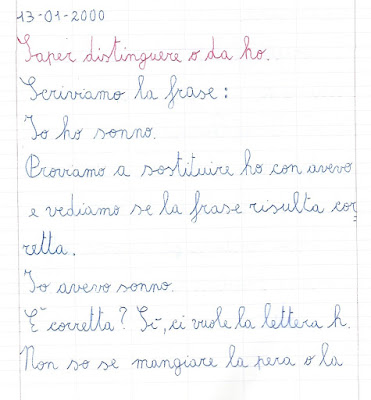 13-01-2000
Saper distinguere o da ho.
Scriviamo la frase:
Io ho sonno.
Proviamo a sostituire ho con avevo
e vediamo se la frase risulta cor
retta.
Io avevo sonno.
E' corretta? Sì, ci vuole la lettera h.
Non so se mangiare la pera o la